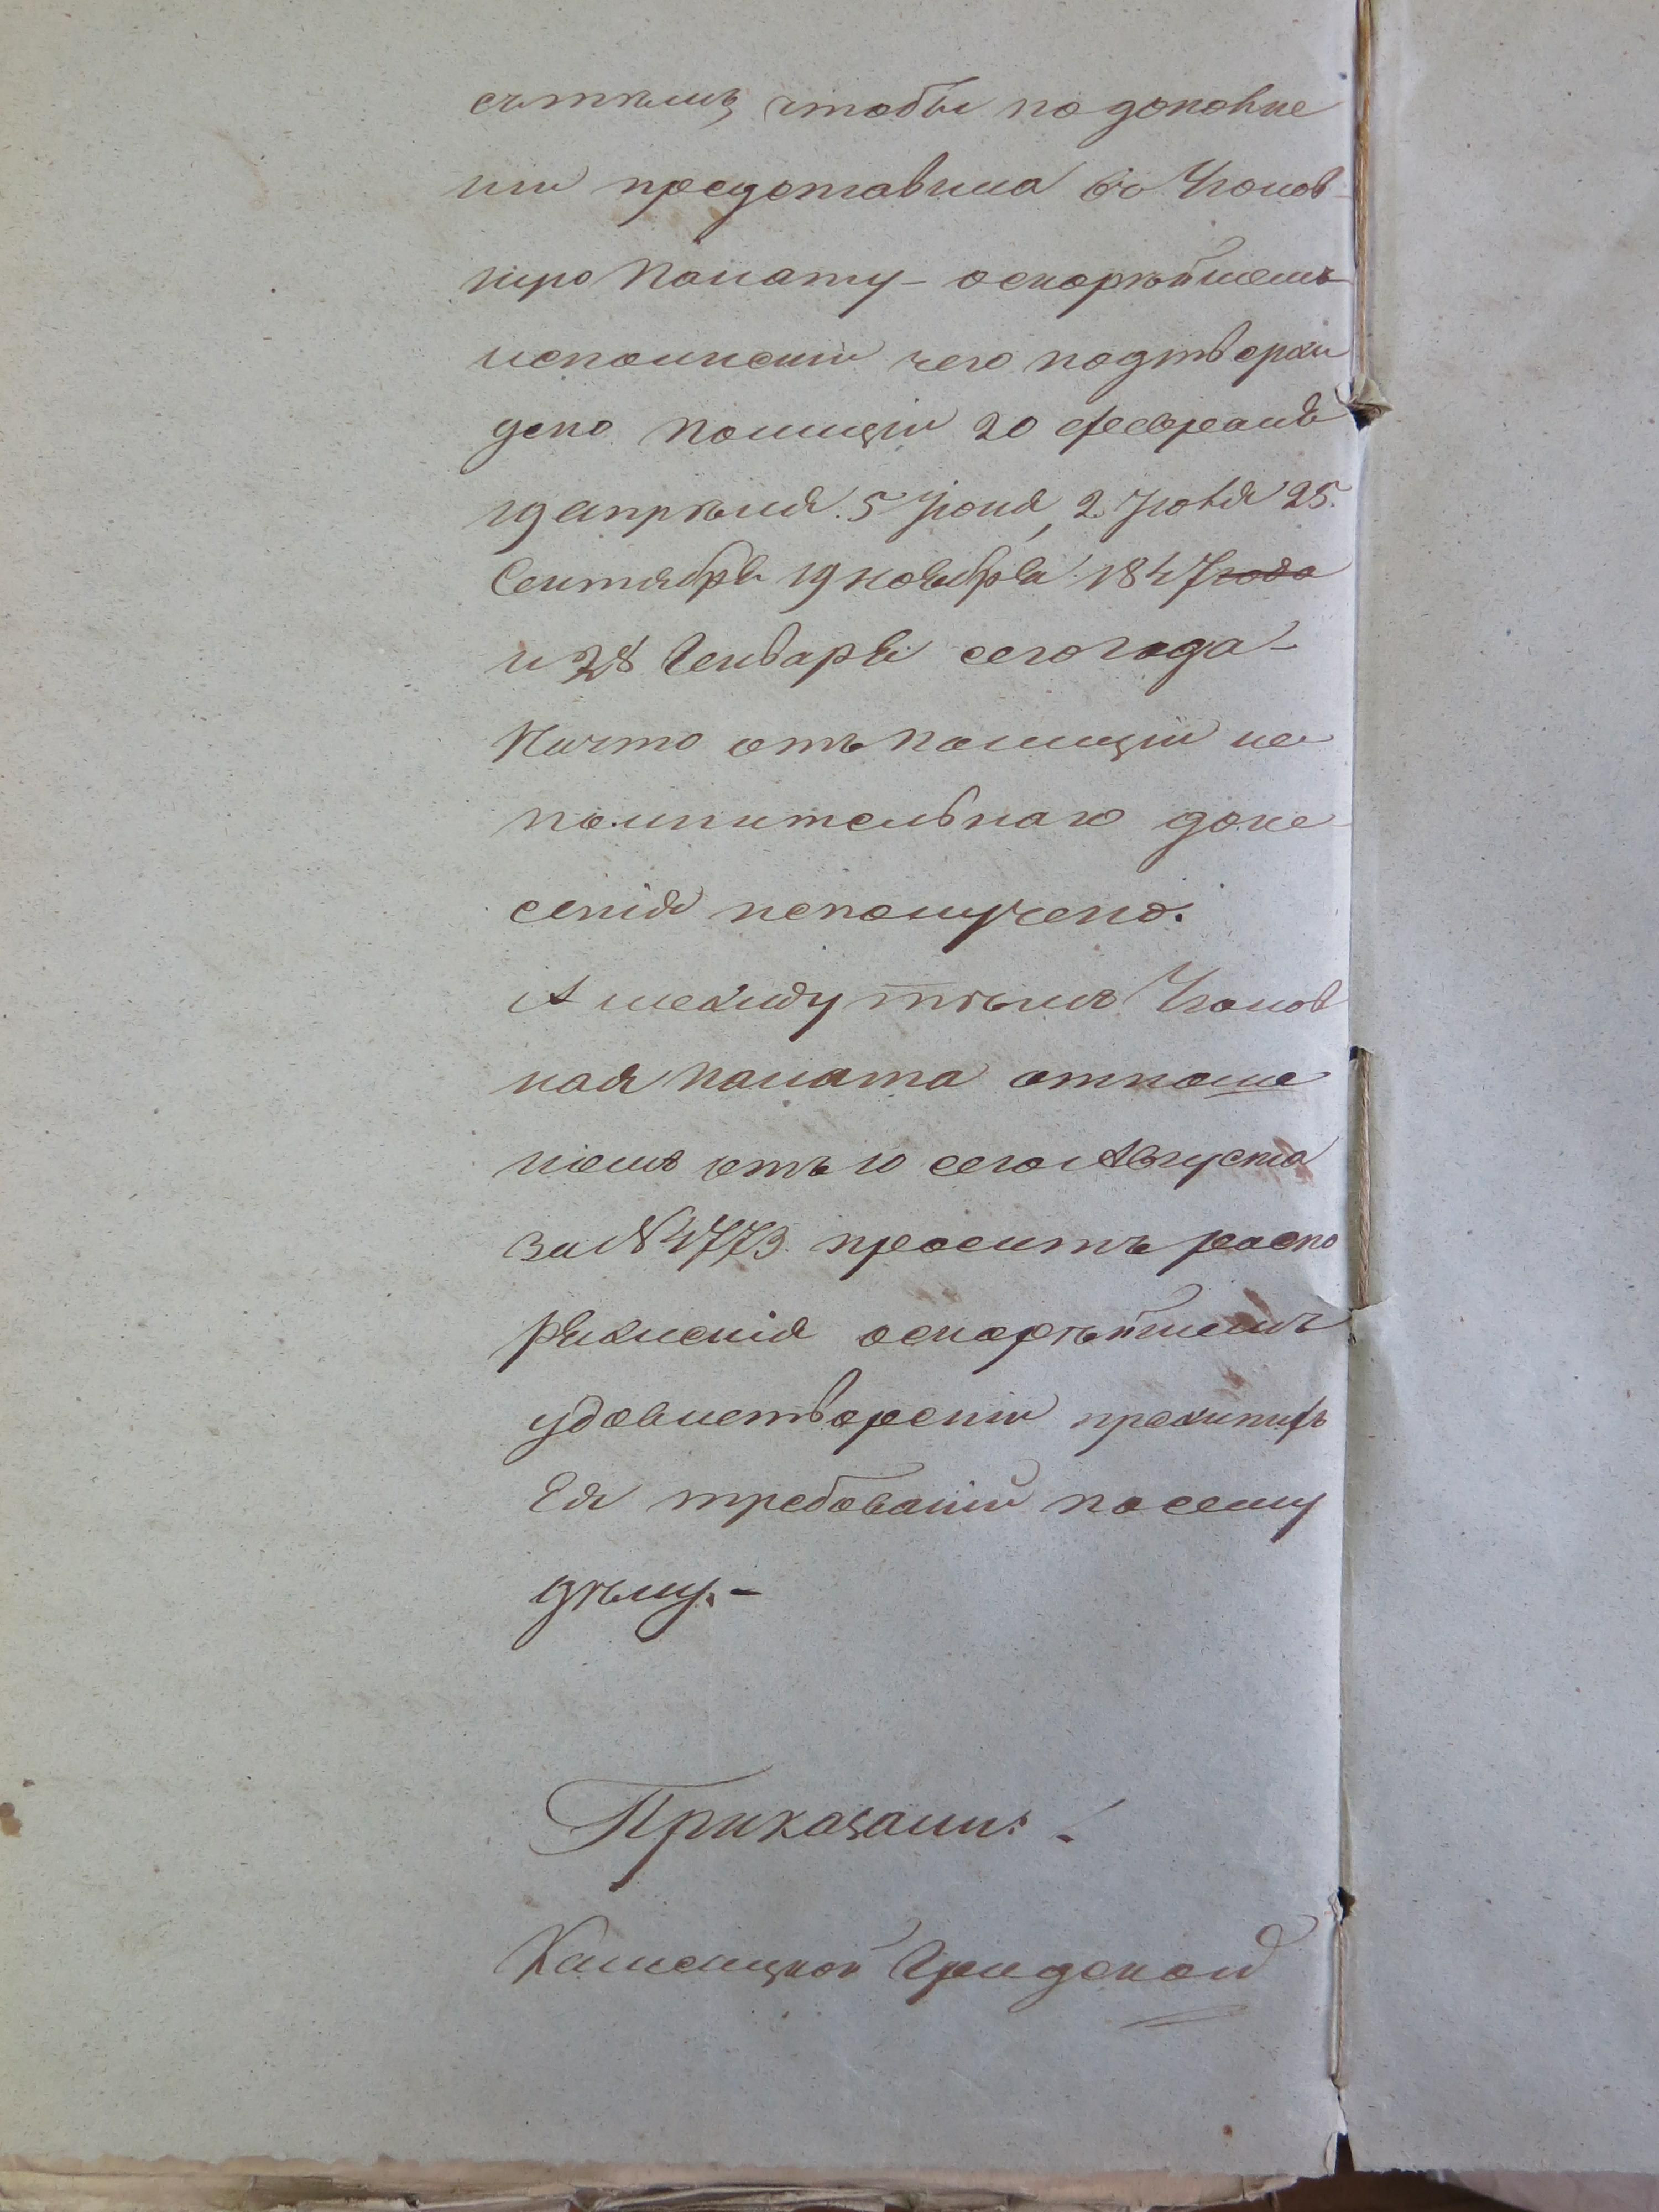 съ тѣмъ, чтобы по дополне
ніи представила во Уголов
ную Палату – о скорѣйшемъ
исполненіи чего подтверж
дено Полиціи 20 февраля
19 апрѣля. 5 Іюня, 2 Іюля 25.
Сентября 19 ноября 1847 года
и 28 Генваря сего года –
На что отъ Полиціи ис
полнительнаго доне
сенія не получено.
А между тѣмъ Уголов
ная палата отноше
ніемъ отъ 10 сего Августа
за № 4773. проситъ распо
ряженія о скорѣйшемъ
удовлетвореніи прежнихъ
Ея требованій по сему
дѣлу. –
Приказали: –
Каменецкой Градской